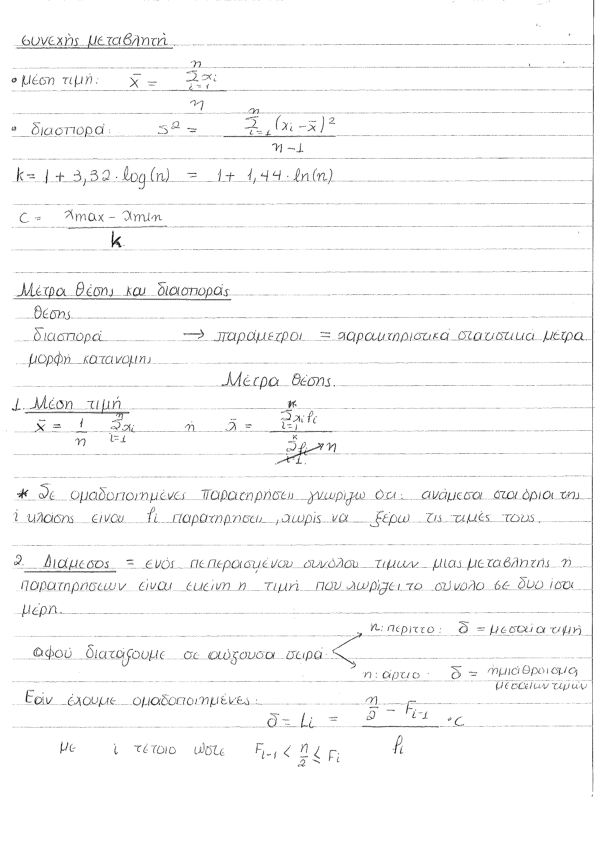 συνεχής μεταβλητή
• μέση τιμή: x̄ = Σ_{i=1}^{n} xi / n
• διασπορά: s² = Σ_{i=1}^{n} (xi - x̄)² / n-1
k = 1 + 3,32·log(n) = 1 + 1,44·ln(n)
c = xmax - xmin / k
Μέτρα θέσης και διασποράς
θέσης
διασπορά → παράμετροι = χαρακτηριστικά στατιστικά μέτρα
μορφή κατανομής
Μέτρα θέσης.
1. Μέση τιμή
x̄ = 1/n Σ_{i=1}^{n} xi ή x̄ = Σ_{i=1}^{k} xi fi / Σ_{i=1}^{k} fi → n
* Σε ομαδοποιημένες παρατηρήσεις γνωρίζω ότι: ανάμεσα στα όρια της
i κλάσης είναι fi παρατηρήσεις, χωρίς να ξέρω τις τιμές τους.
2. Διάμεσος = ενός πεπερασμένου συνόλου τιμών μιας μεταβλητής ή
παρατηρήσεων είναι εκείνη η τιμή που χωρίζει το σύνολο σε δυο ίσα
μέρη.
n: περιττό: δ = μεσαία τιμή
αφού διατάξουμε σε αύξουσα σειρά:
n: άρτιο: δ = ημιάθροισμα μεσαίων τιμών
Εάν έχουμε ομαδοποιημένες:
δ = Li = n/2 - F_{i-1} / fi · c
με i τέτοιο ώστε F_{i-1} < n/2 ≤ Fi